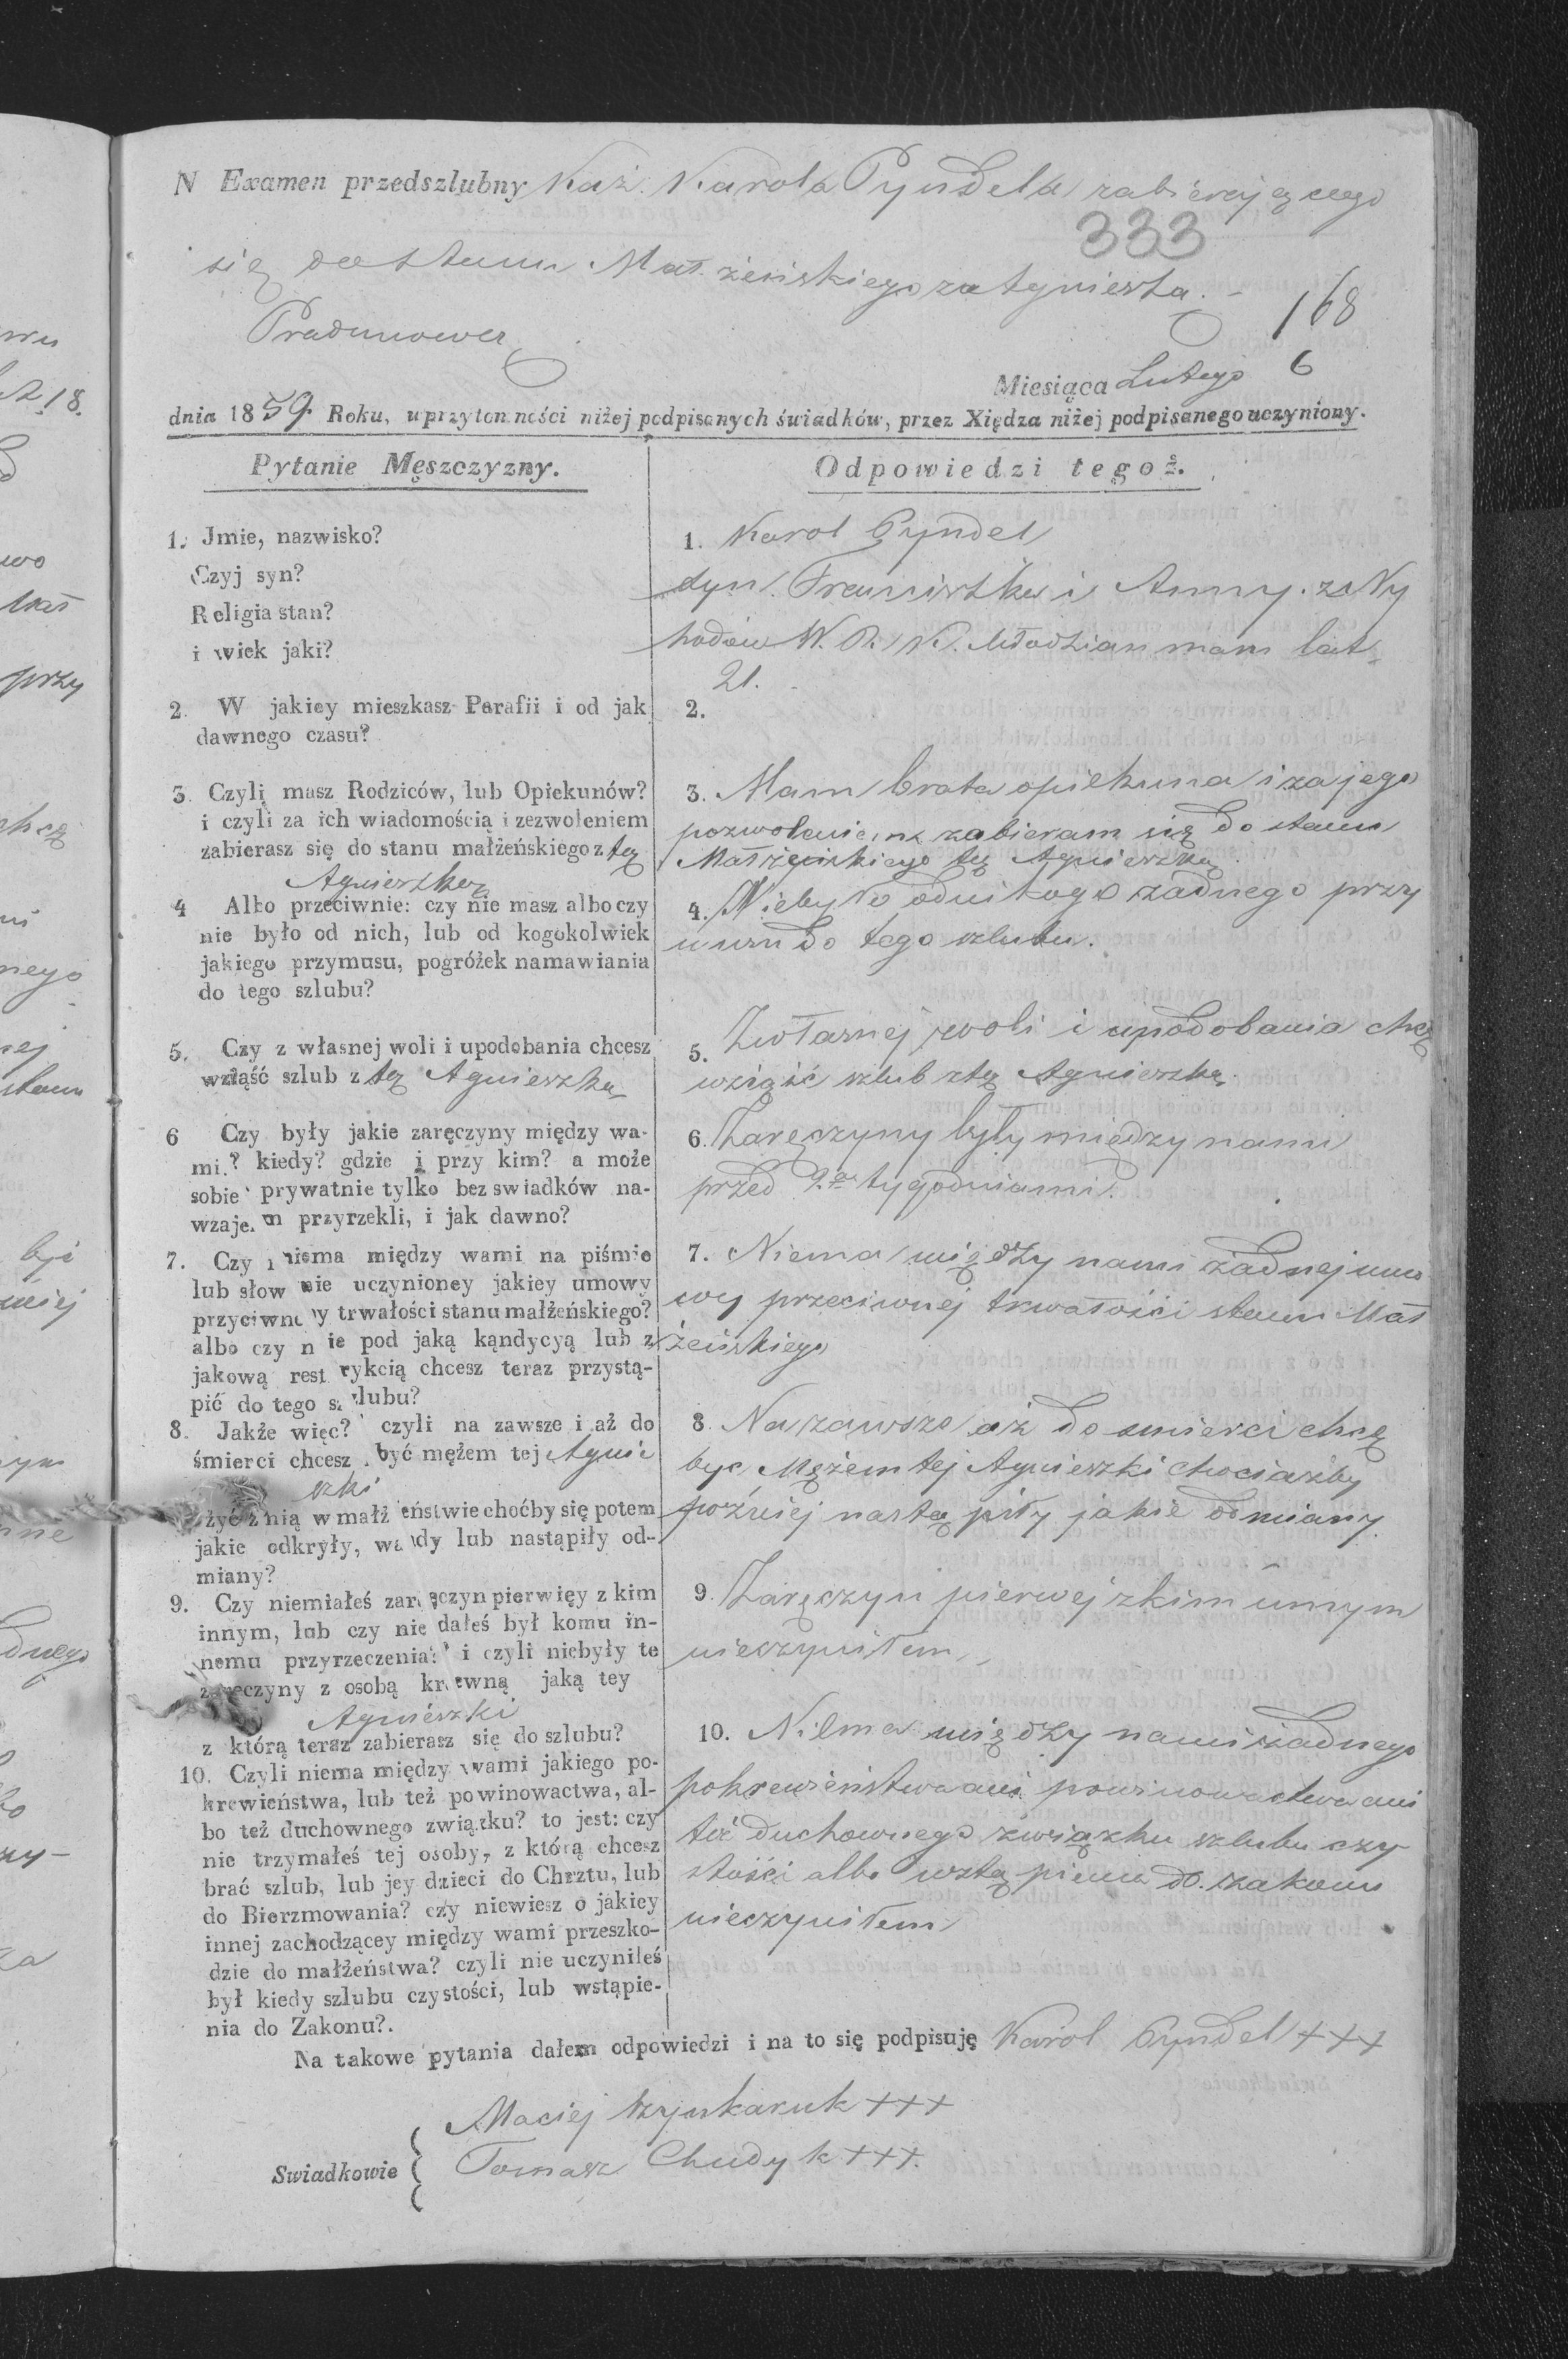 N Examen przedszlubny Kaź. Karola Pyndela zabierającego
333
się do stanu Małżeńskiego za Agnieszką. –
168
Miesiąca Lutego 6
dnia 1859 Roku, w przytomności niżej podpisanych świadków, przez Xiędza niżej podpisanego uczyniony.
Pytanie Męszczyzny.
1. Jmie, nazwisko?
Czyj syn?
Religia stan?
i wiek jaki?
2. W jakiey mieszkasz Parafii i od jak
dawnego czasu?
3. Czyli masz Rodziców, lub Opiekunów?
i czyli za ich wiadomością i zezwoleniem
zabierasz się do stanu małżeńskiego z tą
Agnieszką
4 Albo przeciwnie: czy nie masz albo czy
nie było od nich, lub od kogokolwiek
jakiego przymusu, pogróżek namawiania
do tego szlubu?
5. Czy z własnej woli i upodobania chcesz
wziąść szlub z tą Agnieszką
6 Czy były jakie zaręczyny między wa-
mi? kiedy? gdzie i przy kim? a może
sobie prywatnie tylko bez swiadków na-
wzajem przyrzekli, i jak dawno?
7. Czy niema między wami na piśmie
lub słownie uczynioney jakiey umowy
przyciwney trwałości stanu małżeńskiego?
albo czy nie pod jaką kąndycyą lub z
jakową restrykcią chcesz teraz przystą-
pić do tego szlubu?
8. Jakże więc? czyli na zawsze i aż do
śmierci chcesz być mężem tej Agnie
szki
żyć z nią w małżeństwie choćby się potem
jakie odkryły, wady lub nastąpiły od-
miany?
9. Czy niemiałeś zaręczyn pierwięy z kim
innym, lub czy nie dałeś był komu in-
nemu przyrzeczenia? i czyli niebyły te
zaręczyny z osobą krewną jaką tey
Agnieszki
z którą teraz zabierasz się do szlubu?
10. Czyli niema między wami jakiego po-
krewieństwa, lub też powinowactwa, al-
bo też duchownego związku? to jest: czy
nie trzymałeś tej osoby, z którą chcesz
brać szlub, lub jey dzieci do Chrztu, lub
do Bierzmowania? czy niewiesz o jakiey
innej zachodzącey między wami przeszko-
dzie do małżeństwa? czyli nie uczyniłeś
był kiedy szlubu czystości, lub wstąpie-
nia do Zakonu?.
Odpowiedzi tegoż.
1. Karol Pyndel
syn Franciszka i Anny. z Wy
hodów W. R. K. Młodzian mam lat
21.
2.
3. Mam brata opiekuna i za jego
pozwoleniem zabieram się do stanu
Małżeńskiego tą Agnieszką.
4. Niebyło od nikogo żadnego przy
musu do tego szlubu.
5. Zwłasnej woli i upodobania chcę
wziąść szlub z tą Agnieszką.
6. Zaręczyny były między nami
przed 2. tygodniami.
7. Niema między nami żadnej umo
wy przeciwnej trwałości stanu Mał
żeńskiego
8. Na zawsze aż do smierci chcę
być Mężem tej Agnieszki chociażby
poźniej nastąpiły jakie odmiany.
9. Zaręczyn pierwej z kim innym
nieczyniłem
10. Niema między nami żadnego
pokrewieństwa ani powinowactwa ani
też duchownego związku szlubu czy
stości albo wstąpienia do zakonu
nieczyniłem
Na takowe pytania dałem odpowiedzi i na to się podpisuję Karol Pyndel +++
Maciej +++
Swiadkowie { Tomasz Chudyk +++.